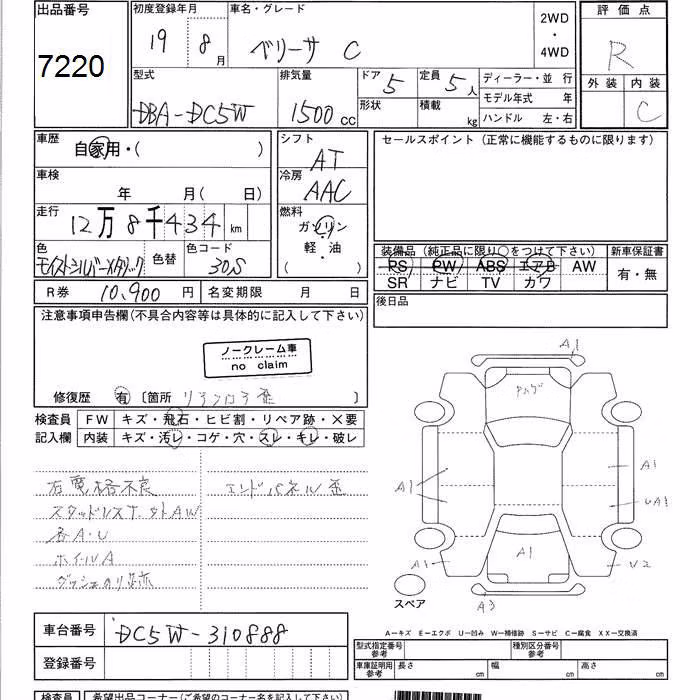 出品番号
7220
初度登録年月
19 8月
車名・グレード
ベリーサ C
2WD
・
4WD
評価点
R
外装 内装
C
型式
DBA-DC5W
排気量
1500cc
ドア 5
形状
定員 5人
積載 kg
ディーラー・並 行
モデル年式 年
ハンドル 左・右
車歴
自家用・( )
車検
年 月( 日)
走行
12万8千434km
色
モイストシルバーメタリック
色替
色コード
30S
シフト
AT
冷房
AAC
燃料
ガソリン
軽・油
( )
セールスポイント (正常に機能するものに限ります)
装備品 (純正品に限り○をつけて下さい)
PS PW ABS エアB AW
SR ナビ TV カワ
新車保証書
有・無
後日品
R券 10,900円
名変期限 月 日
注意事項申告欄(不具合内容等は具体的に記入して下さい)
ノークレーム車
no claim
修復歴 有 〔箇所 〕
検査員
記入欄
FW キズ・飛石・ヒビ割・リペア跡・×要
内装 キズ・汚レ・コゲ・穴・スレ・キレ・破レ
右電格不良
エンドパネル歪
スタッドレスナットAW
各A・U
ホイルA
A1
A1
A1
A1
UA1
A1
U2
A3
スペア
A-キズ E-エクボ U-凹み W-補修跡 S-サビ C-腐食 XX-交換済
車台番号
DC5W-310888
登録番号
型式指定番号
参考
種別区分番号
参考
車庫証明用
参考
長さ cm
幅 cm
高さ cm
検査員
希望出品コーナー(ご希望のコーナー名を記入して下さい)